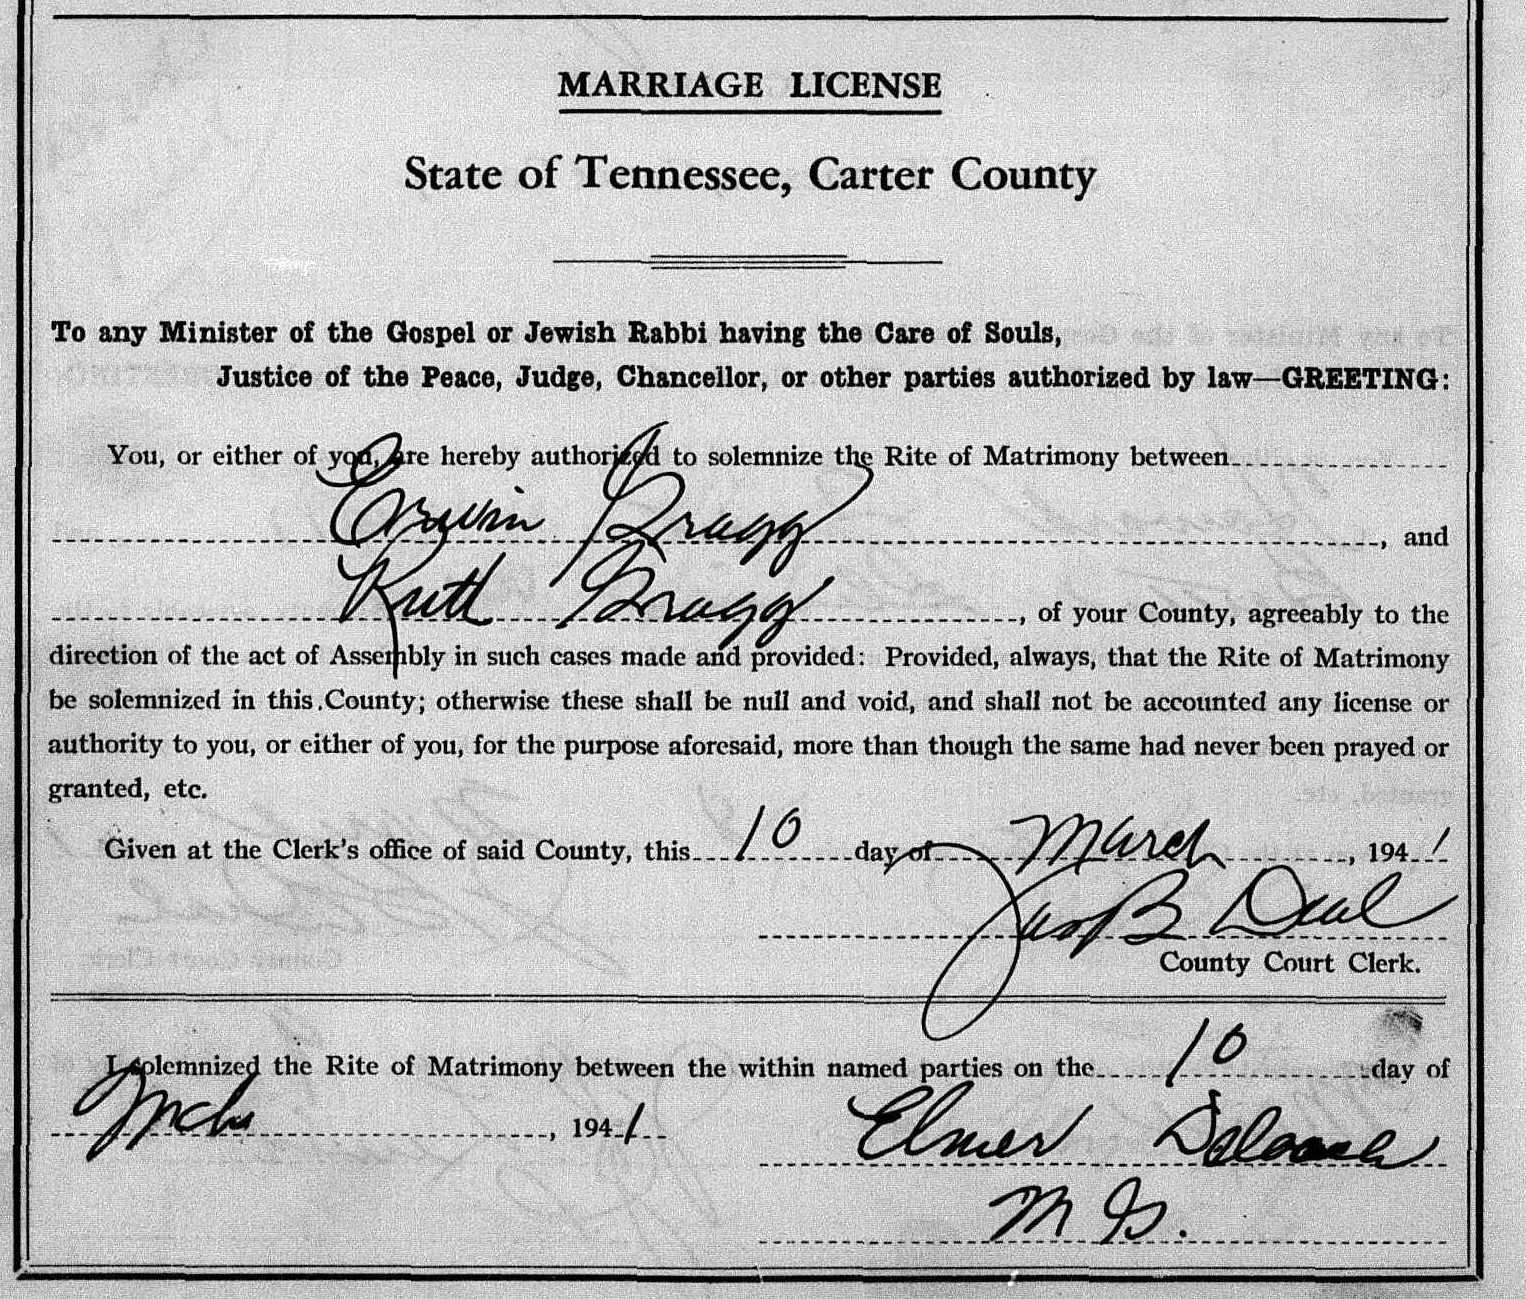 MARRIAGE LICENSE
State of Tennessee, Carter County
To any Minister of the Gospel or Jewish Rabbi having the Care of Souls,
Justice of the Peace, Judge, Chancellor, or other parties authorized by law—GREETING:
You, or either of you, are hereby authorized to solemnize the Rite of Matrimony between
Erwin Bragg, and
Ruth Bragg, of your County, agreeably to the
direction of the act of Assembly in such cases made and provided: Provided, always, that the Rite of Matrimony
be solemnized in this County; otherwise these shall be null and void, and shall not be accounted any license or
authority to you, or either of you, for the purpose aforesaid, more than though the same had never been prayed or
granted, etc.
Given at the Clerk's office of said County, this 10 day of March, 1941
Jas B Deal
County Court Clerk.
I solemnized the Rite of Matrimony between the within named parties on the 10 day of
Mch, 1941 Elmer
M G.